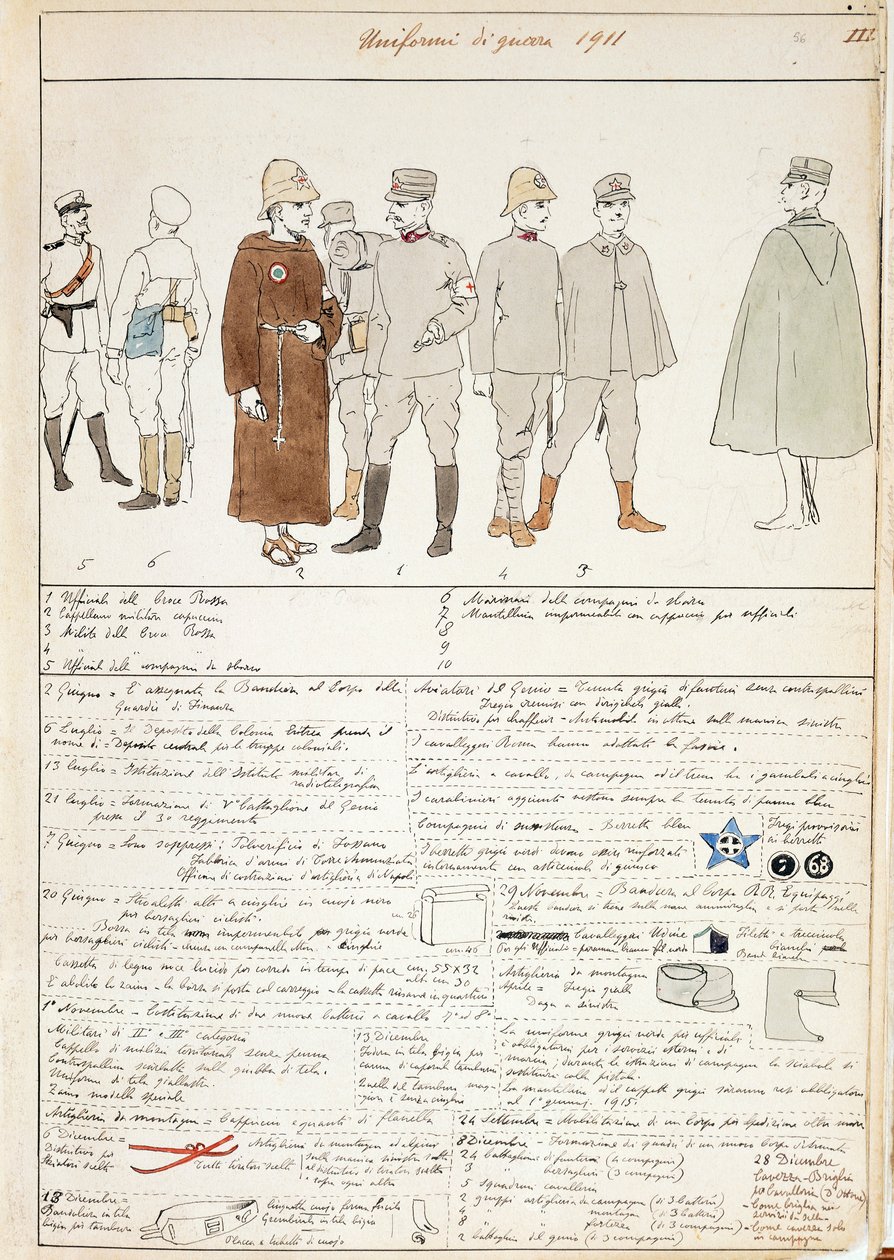 Uniformi di guerra 1911
56
III
5
6
2
1
4
3
1 Ufficiali della Croce Rossa
2 Cappellano militare cappuccino
3 Milite della Croce Rossa
4
5 Ufficiali delle compagnie da sbarco
6 Marinari delle compagnie da sbarco
7 Mantellina impermeabile con cappuccio per ufficiali
8
9
10
2 Giugno = È assegnata la Bandiera al Corpo delle
Guardie di Finanza
6 Luglio = Il Deposito della Colonia Eritrea prende il
nome di = Deposito centrale per le truppe coloniali.
13 luglio = Istituzione dell'Istituto militare di
radiotelegrafia
21 luglio = Formazione di V° battaglione del Genio
presso il 3° reggimento
7 Giugno = Sono soppressi: Polverificio di Fossano
Fabbrica d'armi di Torre Annunziata
Officina di costruzioni d'artiglieria di Napoli
20 Giugno = Stivaletti alti a cinghie in cuoio nero
per bersaglieri ciclisti.
Borsa in tela impermeabile grigio verde
per bersaglieri ciclisti - chiusa con
cm 26
cm. 46
Cassetta di legno noce lucido per corredo in tempo di pace cm. 55 x 32
alt. cm 30
È abolito lo zaino - la borsa si porta sul carreggio - la cassetta rimane in quartiere
1° Novembre - Costituzione di due nuove batterie a cavallo 7ª ed 8ª
Militari di IIª e IIIª categoria
Cappello di milizia territoriale senza penna
Controspalline scarlatte sulla giubba di tela.
Uniforme di tela giallastra.
Zaino modello speciale
13 Dicembre
Fodera in tela bigia per
canna di caporal tamburino
Quella del tamburo mag-
giore è senza cinghie
Artiglieria da montagna = Cappuccio e guanti di flanella
6 Dicembre =
Distintivo per
tiratori scelti
Tutti tiratori scelti
Artiglieri da montagna ed alpini
sulla manica sinistra sotto
al distintivo di tiratore scelto
sopra ogni altro
13 Dicembre =
Bandoliera in tela
bigia per tamburo
Linguetta cuojo forma
Grembiule in tela bigia
Placca e tubetti di cuojo
Aviatori del Genio = Tenuta grigia di fanteria senza controspalline
Fregio cremisi con dirigibile giallo.
Distintivo per chauffeur - Automobile in ottone sulla manica sinistra
I cavalleggeri Roma hanno adottato la fascia.
L'artiglieria a cavallo, da campagna ed il treno ha i gambali a cinghie
I carabinieri aggiunti vestono sempre la tenuta di panno bleu
Compagnie di sussistenza - Berretto bleu
I berretti grigio verdi devono essere rinforzati
internamente con asticciuole di giunco
Fregi provvisori
ai berretti
7
68
29 Novembre = Bandiera al Corpo RR. Equipaggi
Questa bandiera si tiene sulla nave ammiraglia e si porta nelle
riviste.
Cavalleggeri Udine
Filetti e
bianchi
Artiglieria da montagna
Aprile = Fregio giallo
Daga a sinistra
La uniforme grigio verde per ufficiali
è obbligatoria per i servizi esterni e di
marcia; durante le istruzioni di campagna la sciabola si
sostituisce colla pistola.
La mantellina ed il cappotto grigi saranno resi obbligatori
al 1° gennaj. 1915.
24 Settembre = Mobilitazione di un Corpo per spedizione oltre mare
8 Dicembre - Formazione dei quadri di un nuovo Corpo
24 battaglioni di fanteria (4 compagnie)
3 " bersaglieri (3 compagnie)
5 squadroni cavalleria
2 gruppi artiglieria da campagna (di 3 batterie)
4 " " montagna (di 3 batterie)
8 " " fortezza (di 3 compagnie)
2 battaglioni del genio (di 3 compagnie)
28 Dicembre
Cavezza-Briglia
Come briglia nei
servizi di sella
Come cavezza solo
in campagna